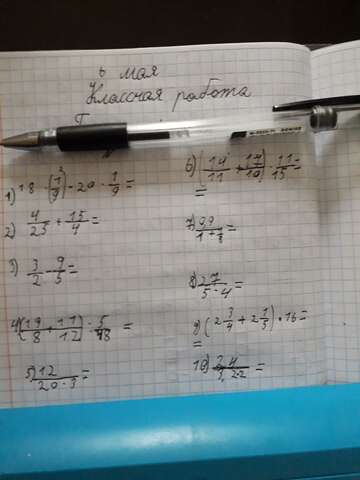 6 мая
Классная работа
1) 18 · (1/9)² - 20 · 1/9 =
2) 4/25 + 15/4 =
3) 3/2 - 9/5 =
4) (19/8 + 11/12) · 5/48 =
5) 12/(20 · 3) =
6) (14/11 + 17/10) · 11/15 =
=
7) 0,9/(1 + 1/8) =
8) 27/(5 · 4) =
9) (2 3/4 + 2 1/5) · 16 =
=
10)